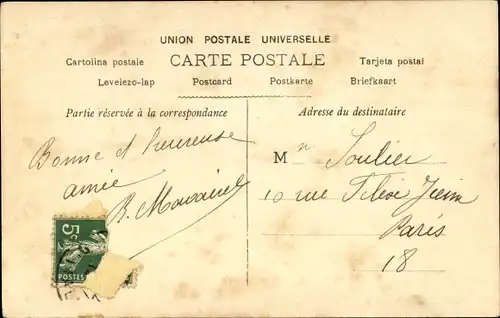 UNION POSTALE UNIVERSELLE
CARTE POSTALE
Cartolina postale
Tarjeta postal
Levelezo-lap
Postcard
Postkarte
Briefkaart
Partie réservée à la correspondance
Bonne et heureuse
année
R.
5c
POSTES
Adresse du destinataire
M Soulier
10 rue
Paris
18